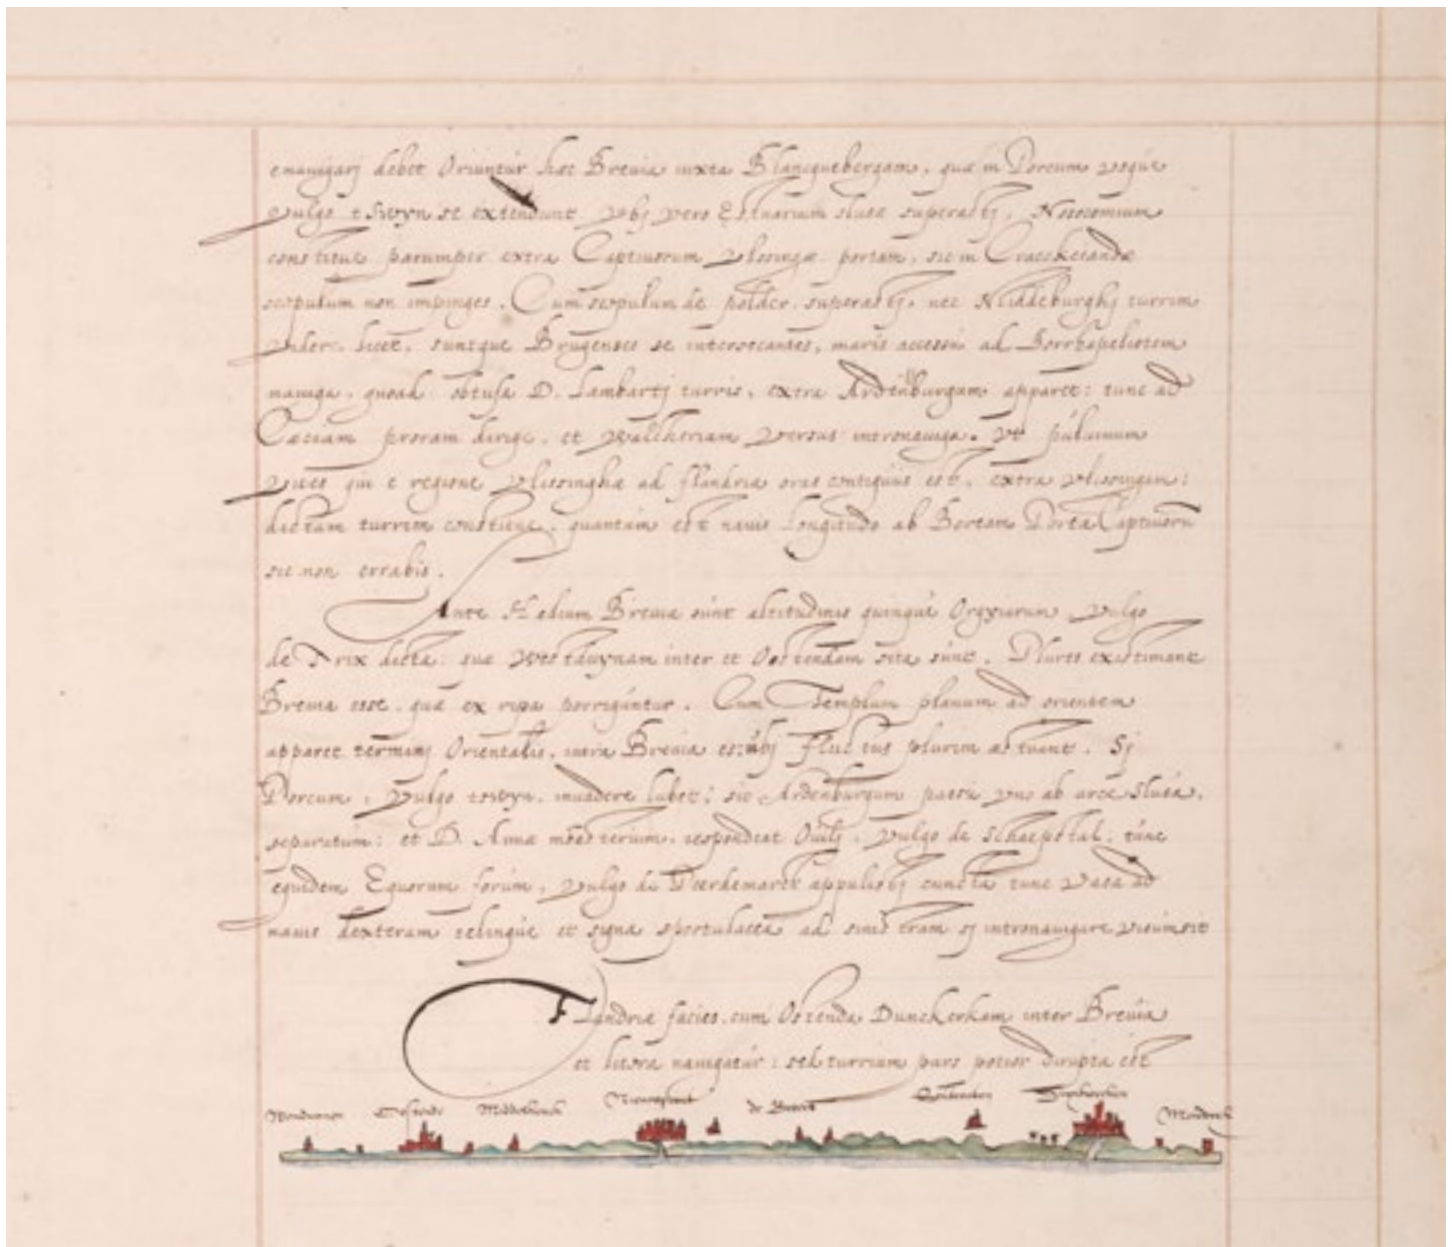 enavigarj debet Oriuntur hæc Brevia iuxta Blancquebergam, quæ in Porcum usque
vulgo t Swyn se extendunt Vbj vero Estuarium slusæ superastj, Nosocomium
constitue parumper extra Captivorum Vlissingæ portam, sic in Craeckeiandæ
scopulum non impinges. Cum scopulum de polder superastj, nec Middeburghj turrim
videre licet, suntque Brugenses se intersecantes, maris accessu ad Borrhapeliotem
naviga, quoad obtusa D. Lambartj turris, extra Ardenburgam apparet: tunc ad
Cæciam proram dirige, et Walcheriam versus intronaviga. Vt pulvinum
qui e regione Vlissinghæ ad flandriæ oras contiguus est, extra Vlissingen:
dictam turrim constitue, quantum est navis longitudo ab Portæ Captivorũ
sic non errabis.
Ante Hedium Brevia sunt altitudinis quinque Orgyiarum, vulgo
de Trix dicta: quæ inter et Oostendam sita sunt. Plures existimant
Brevia esse, quæ ex ripa porriguntur. Cum Templum planum ad orientem
apparet terminj Orientalis, intra Brevia es: ubj fluctus plurim æstuant. Sj
Porcum, vulgo tswyn, invadere lubet: sic Ardenburgum ab arce Slusa,
separatum: et D. Annæ monsterium, respondeat Ovilj, vulgo de Schaepstal, tunc
equidem Equorum forum, vulgo de Peerdemarct appulistj cuncta tunc Vasa ad
navis dexteram relinque et signa sportulacea ad sinistram sj intronavigare visum sit
Flandriæ facies, cum Ostenda Dunckerkam inter Brevia
et litora navigatur: sed turrium pars potior dirupta est
Oostende Middelkerck Nieupoort Duynkercken